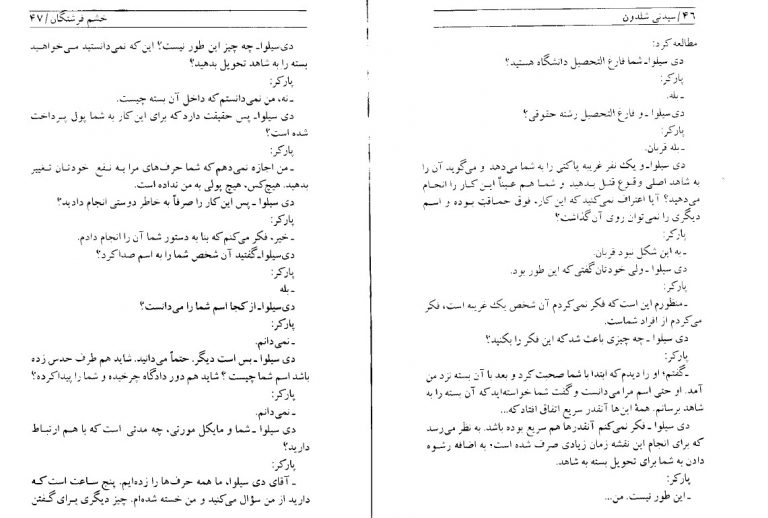 ۴۶/سیدنی شلدون
مطالعه کرد:
دی سیلوا ـ شما فارغ التحصیل دانشگاه هستید؟
پارکر:
ـ بله.
دی‌سیلوا ـ و فارغ التحصیل رشته حقوقی؟
پارکر:
ـ بله قربان.
دی سیلوا ـ و یک نفر غریبه پاکتی را به شما می‌دهد و می‌گوید آن را
به شاهد اصلی وقوع قتل بدهید و شما هم عیناً این کار را انجام
می‌دهید؟ آیا اعتراف نمی‌کنید که این کار، فوق حماقت بوده و اسم
دیگری را نمی‌توان روی آن گذاشت؟
پارکر:
ـ به این شکل نبود قربان.
دی سیلوا ـ ولی خودتان گفتی که این طور بود.
پارکر:
ـ منظورم این است که فکر نمی‌کردم آن شخص یک غریبه است، فکر
می‌کردم از افراد شماست.
دی سیلوا ـ چه چیزی باعث شد که این فکر را بکنید؟
پارکر:
ـ گفتم؛ او را دیدم که ابتدا با شما صحبت کرد و بعد با آن بسته نزد من
آمد. او حتی اسم مرا می‌دانست و گفت شما خواسته‌اید که آن بسته را به
شاهد برسانم. همهٔ این‌ها آنقدر سریع اتفاق افتاد که...
دی سیلوا ـ فکر نمی‌کنم آنقدرها هم سریع بوده باشد. به نظر می‌رسد
که برای انجام این نقشه زمان زیادی صرف شده است؛ به اضافه رشوه
دادن به شما برای تحویل بسته به شاهد.
پارکر:
ـ این طور نیست. من...
خشم فرشتگان/۴۷
دی‌سیلوا ـ چه چیز این طور نیست؟ این که نمی‌دانستید می‌خواهید
بسته را به شاهد تحویل بدهید؟
پارکر:
ـ نه، من نمی‌دانستم که داخل آن بسته چیست.
دی‌سیلوا ـ پس حقیقت دارد که برای این کار به شما پول پرداخت
شده است؟
پارکر:
ـ من اجازه نمی‌دهم که شما حرف‌های مرا به نفع خودتان تغییر
بدهید. هیچ‌کس، هیچ پولی به من نداده است.
دی سیلوا ـ پس این کار را صرفاً به خاطر دوستی انجام دادید؟
پارکر:
ـ خیر، فکر می‌کنم که بنا به دستور شما آن را انجام دادم.
دی سیلوا ـ گفتید آن شخص شما را به اسم صدا کرد؟
پارکر:
ـ بله
دی‌سیلوا ـ از کجا اسم شما را می‌دانست؟
پارکر:
ـ نمی‌دانم.
دی سیلوا ـ بس است دیگر. حتماً می‌دانید. شاید هم طرف حدس زده
باشد اسم شما چیست؟ شاید هم دور دادگاه چرخیده و شما را پیدا کرده؟
پارکر:
ـ نمی‌دانم.
دی سیلوا ـ شما و مایکل مورتی، چه مدتی است که با هم ارتباط
دارید؟
پارکر:
ـ آقای دی سیلوا، ما همه حرف‌ها را زده‌ایم. پنج ساعت است که
دارید از من سؤال می‌کنید و من خسته شده‌ام. چیز دیگری برای گفتن